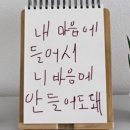 내 마음에
들어서
니 마음에
안 들어도 돼